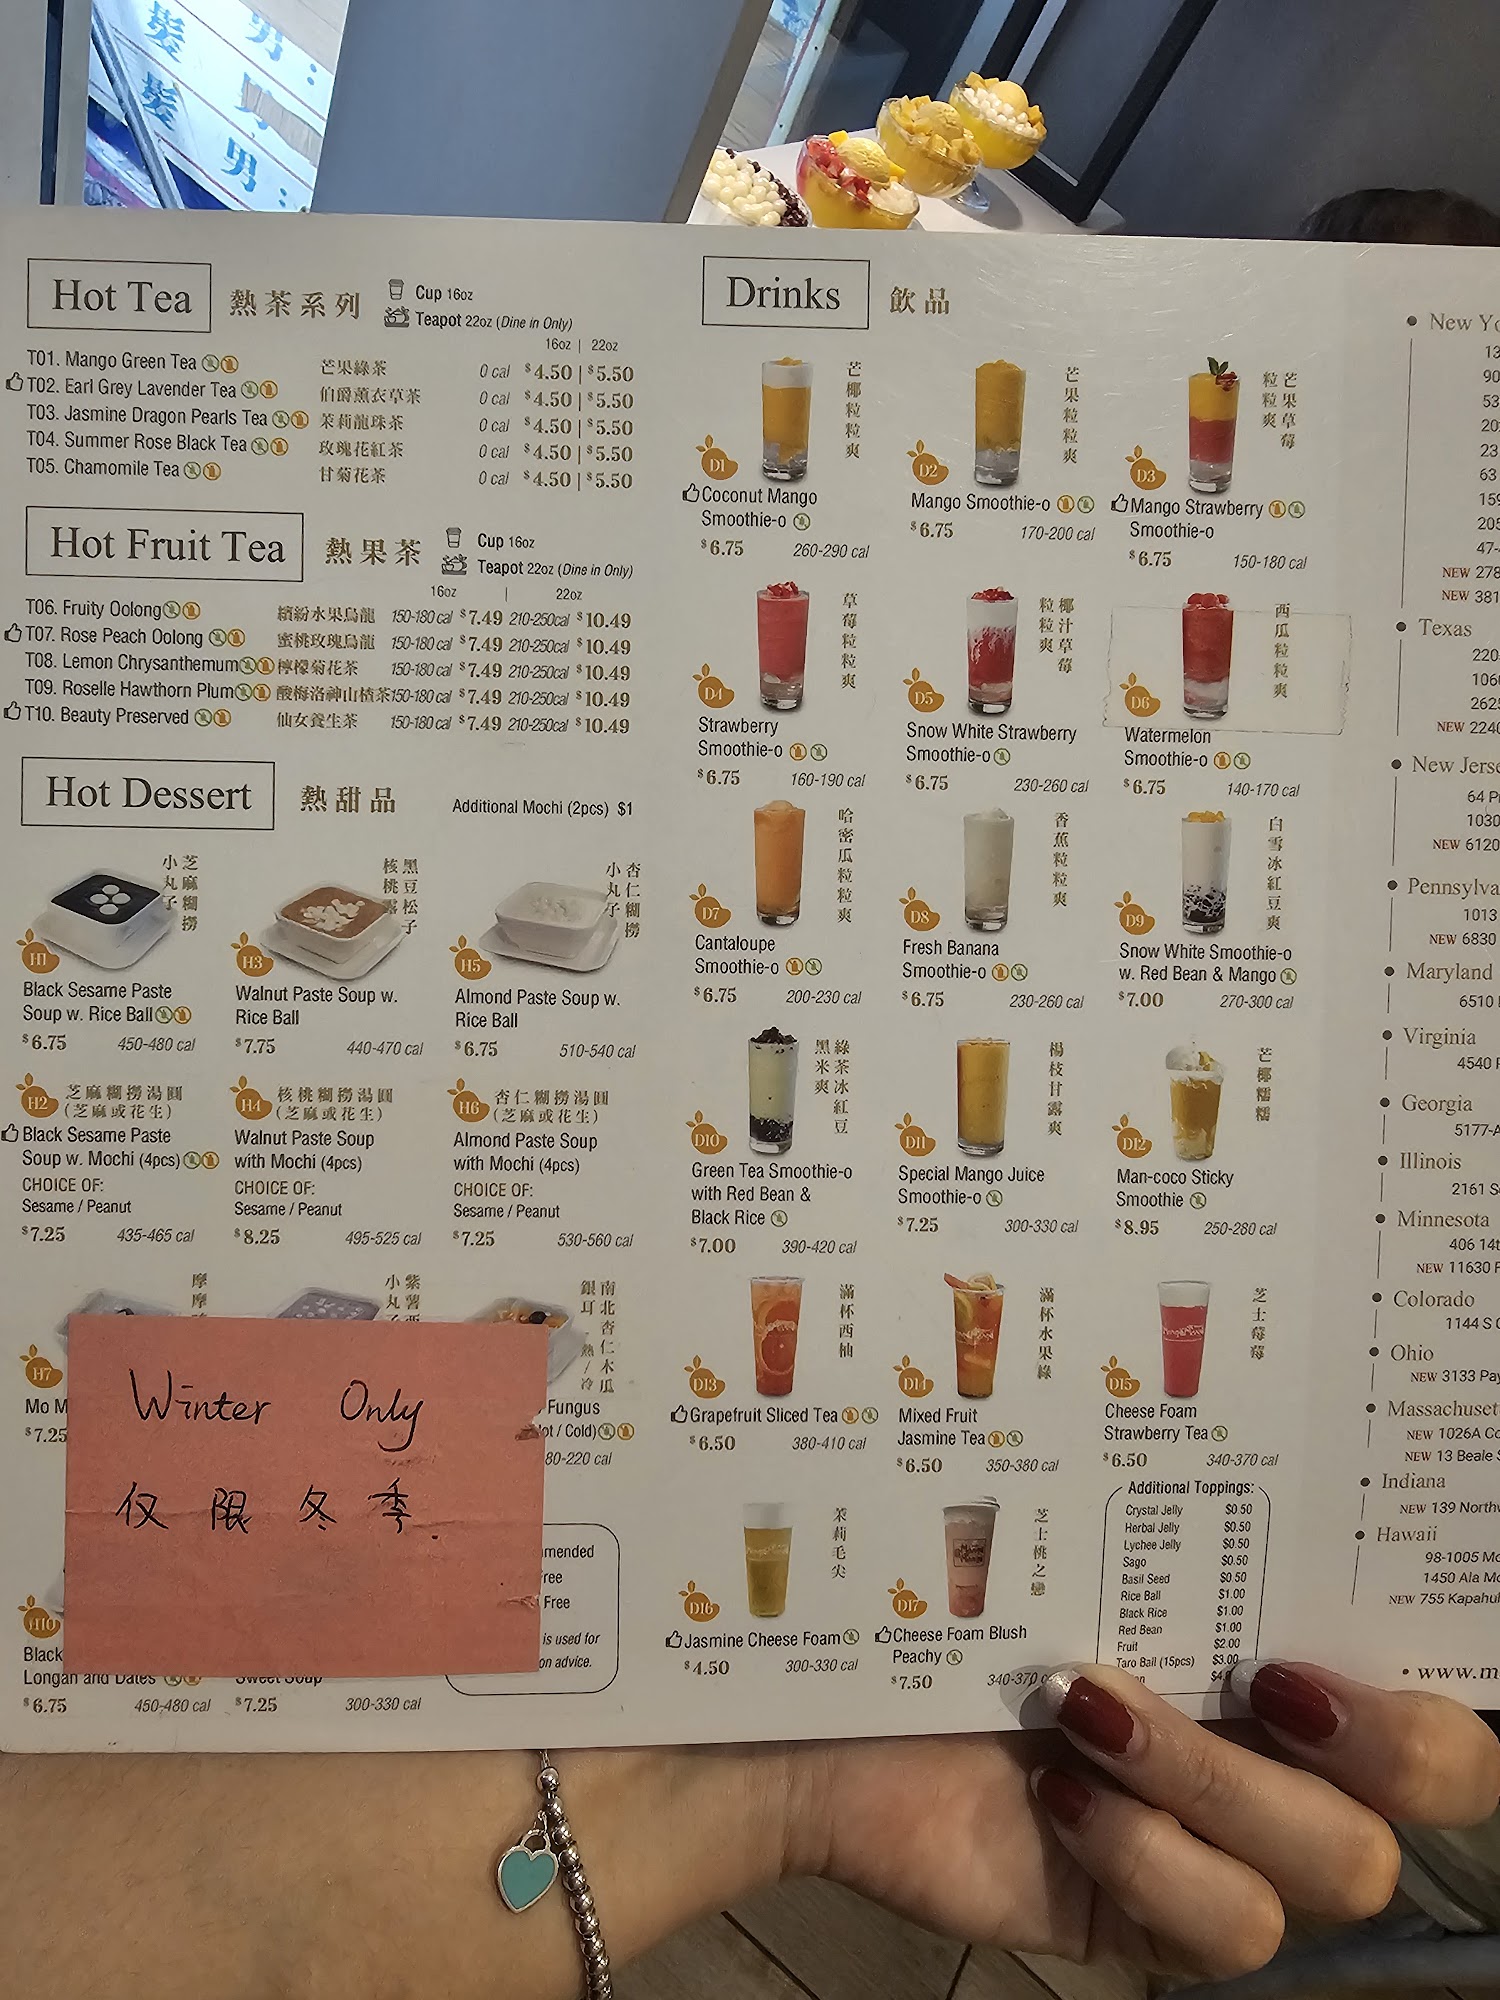 Hot Tea
熱茶系列
Cup 16oz
Teapot 22oz (Dine in Only)
16oz | 22oz
T01. Mango Green Tea 芒果綠茶 0 cal $4.50 | $5.50
T02. Earl Grey Lavender Tea 伯爵薰衣草茶 0 cal $4.50 | $5.50
T03. Jasmine Dragon Pearls Tea 茉莉龍珠茶 0 cal $4.50 | $5.50
T04. Summer Rose Black Tea 玫瑰花紅茶 0 cal $4.50 | $5.50
T05. Chamomile Tea 甘菊花茶 0 cal $4.50 | $5.50
Hot Fruit Tea
熱果茶
Cup 16oz
Teapot 22oz (Dine in Only)
16oz | 22oz
T06. Fruity Oolong 繽紛水果烏龍 150-180 cal $7.49 210-250cal $10.49
T07. Rose Peach Oolong 蜜桃玫瑰烏龍 150-180 cal $7.49 210-250cal $10.49
T08. Lemon Chrysanthemum 檸檬菊花茶 150-180 cal $7.49 210-250cal $10.49
T09. Roselle Hawthorn Plum 酸梅洛神山楂茶 150-180 cal $7.49 210-250cal $10.49
T10. Beauty Preserved 仙女養生茶 150-180 cal $7.49 210-250cal $10.49
Hot Dessert
熱甜品
Additional Mochi (2pcs) $1
芝麻糊撈
小丸子
H1
Black Sesame Paste
Soup w. Rice Ball
$6.75 450-480 cal
黑豆松子
核桃露
H3
Walnut Paste Soup w.
Rice Ball
$7.75 440-470 cal
杏仁糊撈
小丸子
H5
Almond Paste Soup w.
Rice Ball
$6.75 510-540 cal
H2
芝麻糊撈湯圓
(芝麻或花生)
Black Sesame Paste
Soup w. Mochi (4pcs)
CHOICE OF:
Sesame / Peanut
$7.25 435-465 cal
H4
核桃糊撈湯圓
(芝麻或花生)
Walnut Paste Soup
with Mochi (4pcs)
CHOICE OF:
Sesame / Peanut
$8.25 495-525 cal
H6
杏仁糊撈湯圓
(芝麻或花生)
Almond Paste Soup
with Mochi (4pcs)
CHOICE OF:
Sesame / Peanut
$7.25 530-560 cal
摩摩
紫薯西
小丸子
南北杏仁木瓜
銀耳-熱/冷
H7
Mo M
$7.25
Fungus
ot / Cold)
80-220 cal
Winter Only
仅限冬季.
mended
ree
Free
is used for
on advice.
H10
Black
Longan and Dates
$6.75 450-480 cal
Sweet Soup
$7.25 300-330 cal
Drinks
飲品
芒椰粒粒爽
D1
Coconut Mango
Smoothie-o
$6.75 260-290 cal
芒果粒粒爽
D2
Mango Smoothie-o
$6.75 170-200 cal
芒果草莓
粒粒爽
D3
Mango Strawberry
Smoothie-o
$6.75 150-180 cal
草莓粒粒爽
D4
Strawberry
Smoothie-o
$6.75 160-190 cal
椰汁草莓
粒粒爽
D5
Snow White Strawberry
Smoothie-o
$6.75 230-260 cal
西瓜粒粒爽
D6
Watermelon
Smoothie-o
$6.75 140-170 cal
哈密瓜粒粒爽
D7
Cantaloupe
Smoothie-o
$6.75 200-230 cal
香蕉粒粒爽
D8
Fresh Banana
Smoothie-o
$6.75 230-260 cal
白雪冰紅豆爽
D9
Snow White Smoothie-o
w. Red Bean & Mango
$7.00 270-300 cal
綠茶冰紅豆
黑米爽
D10
Green Tea Smoothie-o
with Red Bean &
Black Rice
$7.00 390-420 cal
楊枝甘露爽
D11
Special Mango Juice
Smoothie-o
$7.25 300-330 cal
芒椰糯糯
D12
Man-coco Sticky
Smoothie
$8.95 250-280 cal
滿杯西柚
D13
Grapefruit Sliced Tea
$6.50 380-410 cal
滿杯水果綠
D14
Mixed Fruit
Jasmine Tea
$6.50 350-380 cal
芝士莓莓
D15
Cheese Foam
Strawberry Tea
$6.50 340-370 cal
茉莉毛尖
D16
Jasmine Cheese Foam
$4.50 300-330 cal
芝士桃之戀
D17
Cheese Foam Blush
Peachy
$7.50 340-370 c
Additional Toppings:
Crystal Jelly $0.50
Herbal Jelly $0.50
Lychee Jelly $0.50
Sago $0.50
Basil Seed $0.50
Rice Ball $1.00
Black Rice $1.00
Red Bean $1.00
Fruit $2.00
Taro Ball (15pcs) $3.00
New Yo
13
90
53
20
23
63
159
205
47-
NEW 278
NEW 381
Texas
220
106
262
NEW 2240
New Jerse
64 P
1030
NEW 6120
Pennsylva
1013
NEW 6830
Maryland
6510
Virginia
4540
Georgia
5177-A
Illinois
2161 S
Minnesota
406 14t
NEW 11630 F
Colorado
1144 S
Ohio
NEW 3133 Pay
Massachuset
NEW 1026A Co
NEW 13 Beale S
Indiana
NEW 139 Northw
Hawaii
98-1005 Mo
1450 Ala Mo
NEW 755 Kapahul
www.m